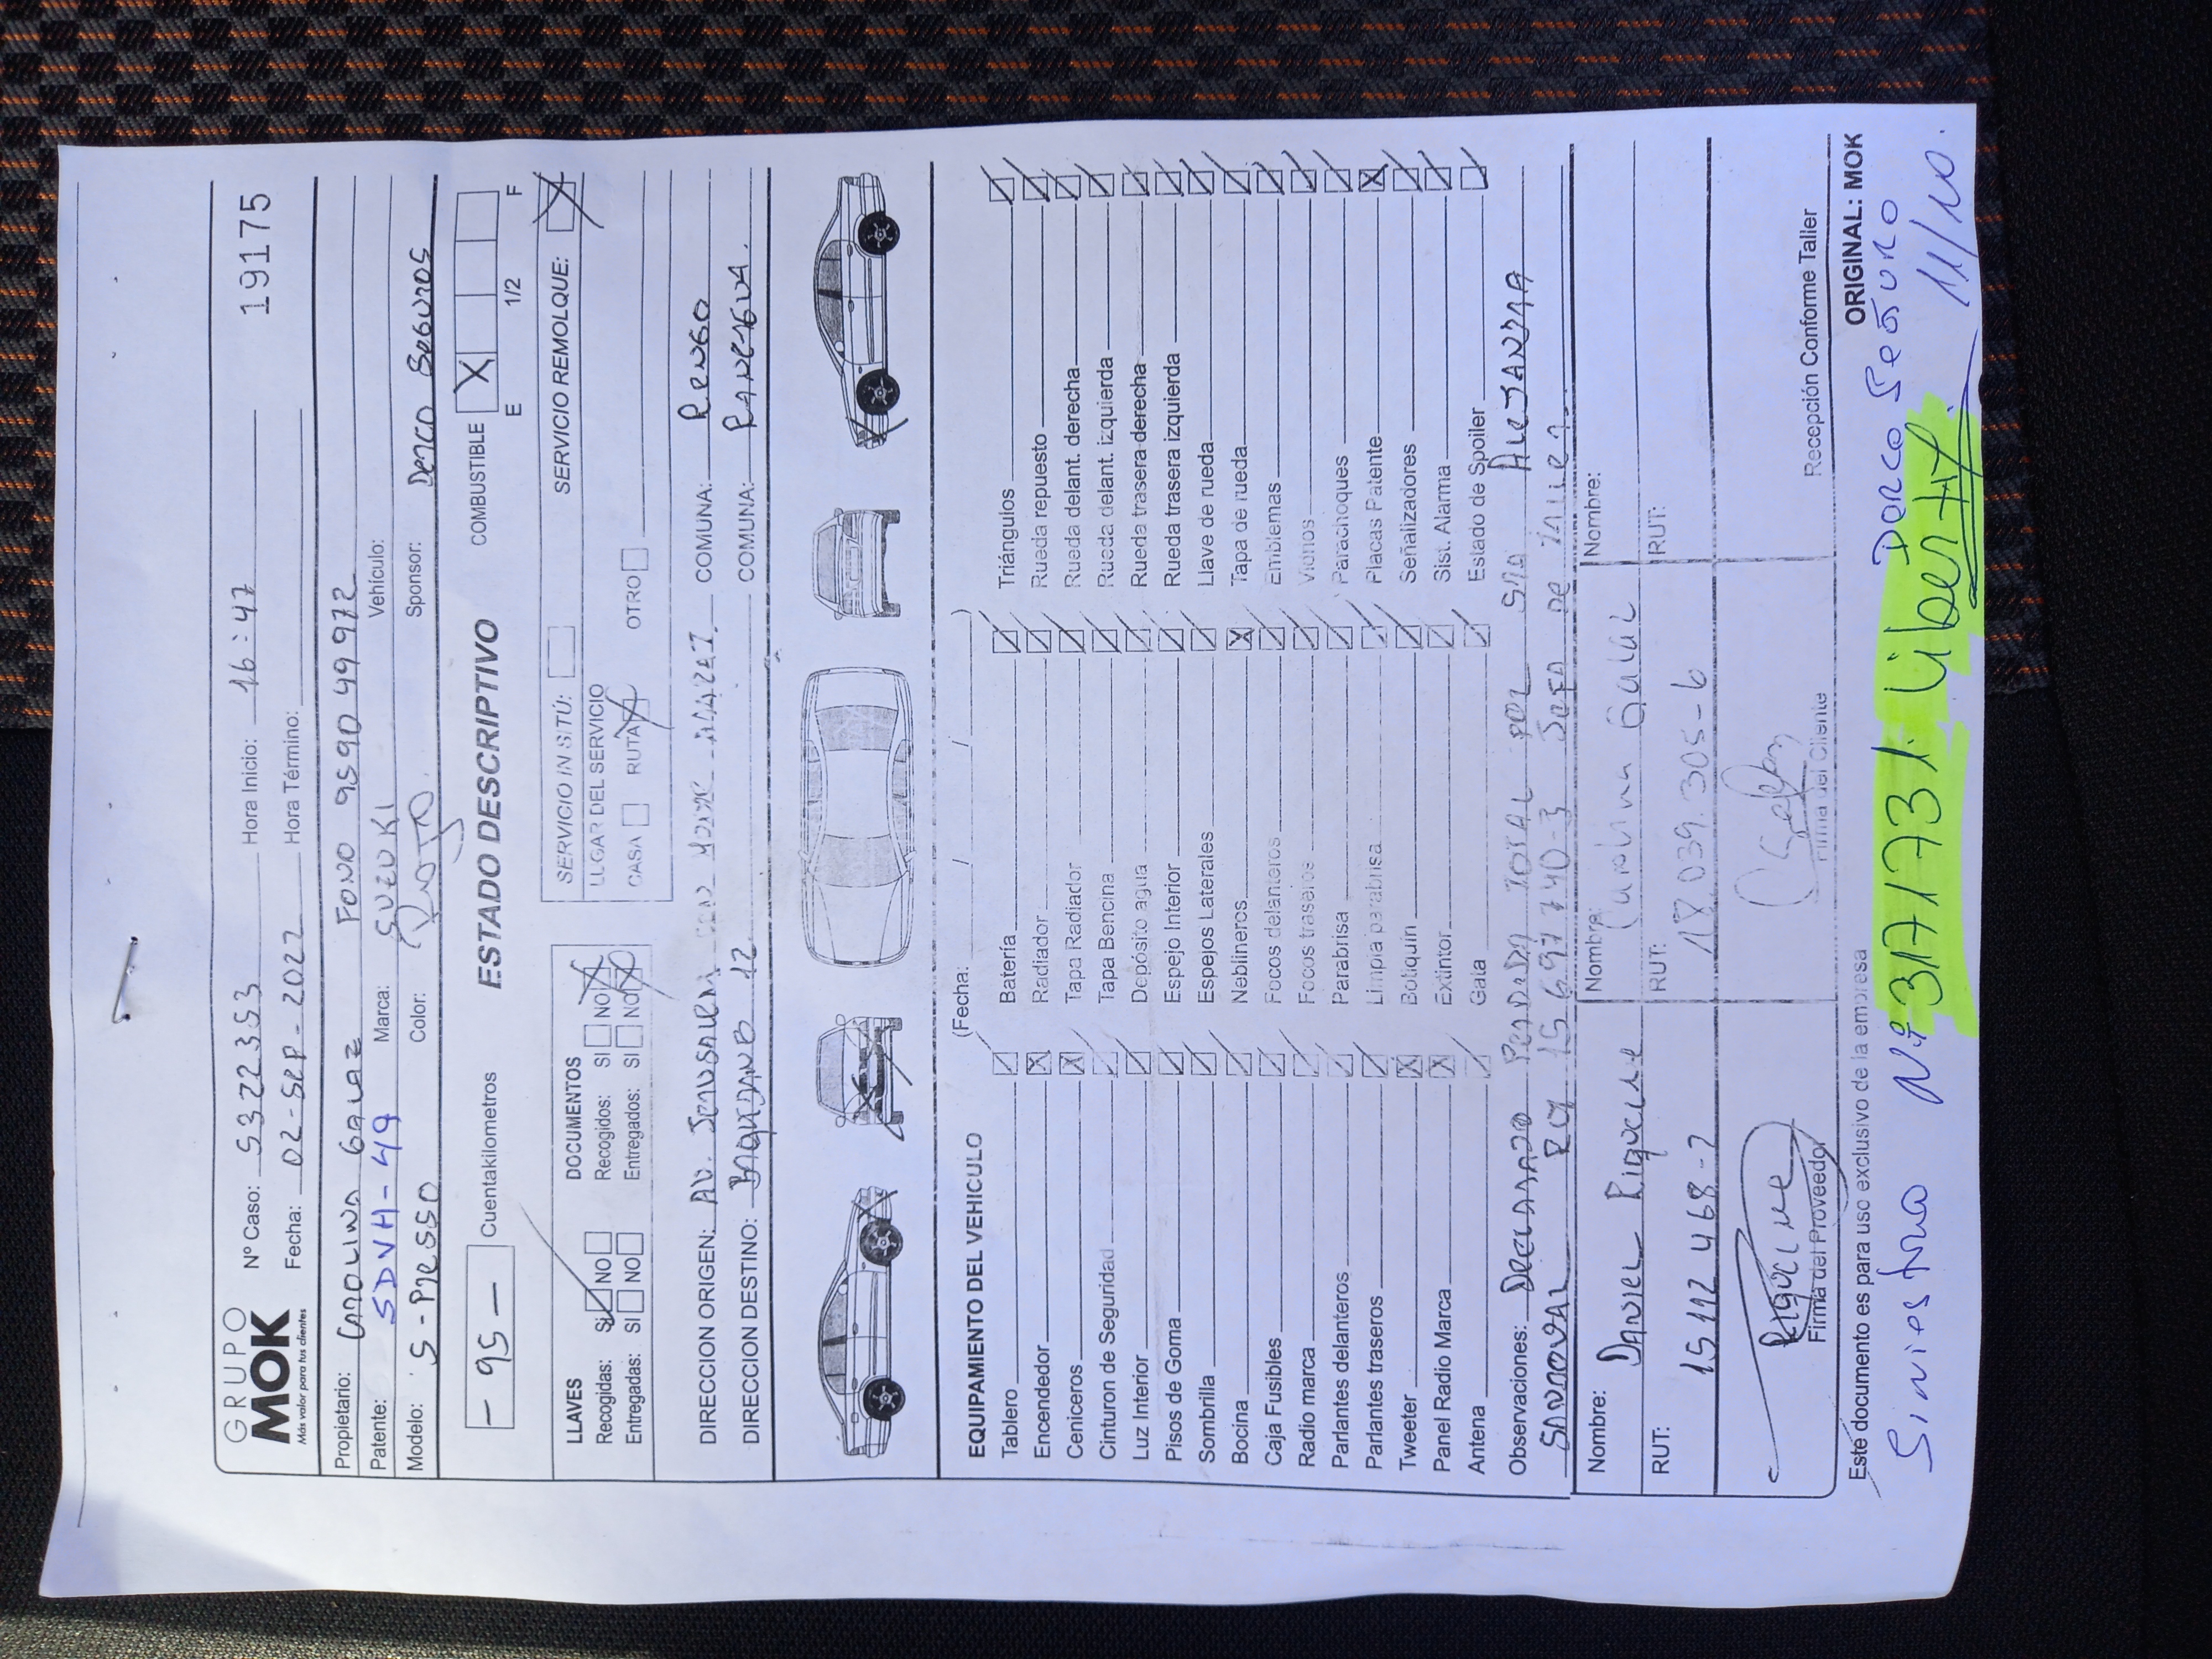 GRUPO
MOK
Más valor para tus clientes
Nº Caso: 5322353 Hora Inicio: 16:47 19175
Fecha: 02-Sep-2022 Hora Término:
Propietario: Carolina Galaz Fono 959049972
Patente: SDVH-49 Marca: SUZUKI Vehículo:
Modelo: S-Presso Color: Rojo. Sponsor: Derco Seguros
- 95 - Cuentakilometros ESTADO DESCRIPTIVO COMBUSTIBLE X
E 1/2 F
LLAVES DOCUMENTOS SERVICIO IN SITÚ: SERVICIO REMOLQUE: X
Recogidas: SI NO Recogidos: SI NO LUGAR DEL SERVICIO
Entregadas: SI NO Entregados: SI NO CASA RUTA OTRO
DIRECCION ORIGEN: Av. COMUNA: Rengo
DIRECCION DESTINO: Baquedano 12 COMUNA: Rancagua.
EQUIPAMIENTO DEL VEHICULO (Fecha: / / )
Tablero Batería Triángulos
Encendedor Radiador Rueda repuesto
Ceniceros Tapa Radiador Rueda delant. derecha
Cinturon de Seguridad Tapa Bencina Rueda delant. izquierda
Luz Interior Depósito agua Rueda trasera derecha
Pisos de Goma Espejo Interior Rueda trasera izquierda
Sombrilla Espejos Laterales Llave de rueda
Bocina Neblineros Tapa de rueda
Caja Fusibles Focos delanteros Emblemas
Radio marca Focos traseros Vidrios
Parlantes delanteros Parabrisa Parachoques
Parlantes traseros Limpia parabrisa Placas Patente
Tweeter Botiquín Señalizadores
Panel Radio Marca Extintor Sist. Alarma
Antena Gata Estado de Spoiler
Observaciones: Declarado Perdida Total por Sra Alejandra
Sandoval Rut 15 697 740-3 Jefa de Taller.
Nombre: Daniel Riquelme Nombre: Carolina Galaz Nombre:
RUT: 15 112 468-7 RUT: 18 039.305-6 RUT:
Riquelme
Firma del Proveedor Firma del Cliente Recepción Conforme Taller
Este documento es para uso exclusivo de la empresa ORIGINAL: MOK
Siniestro Nº 3171731. Liberty Derco Seguro
11/10.